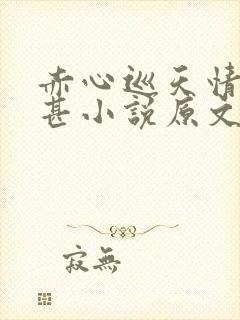 赤心巡天情
甚小说原文
寂無